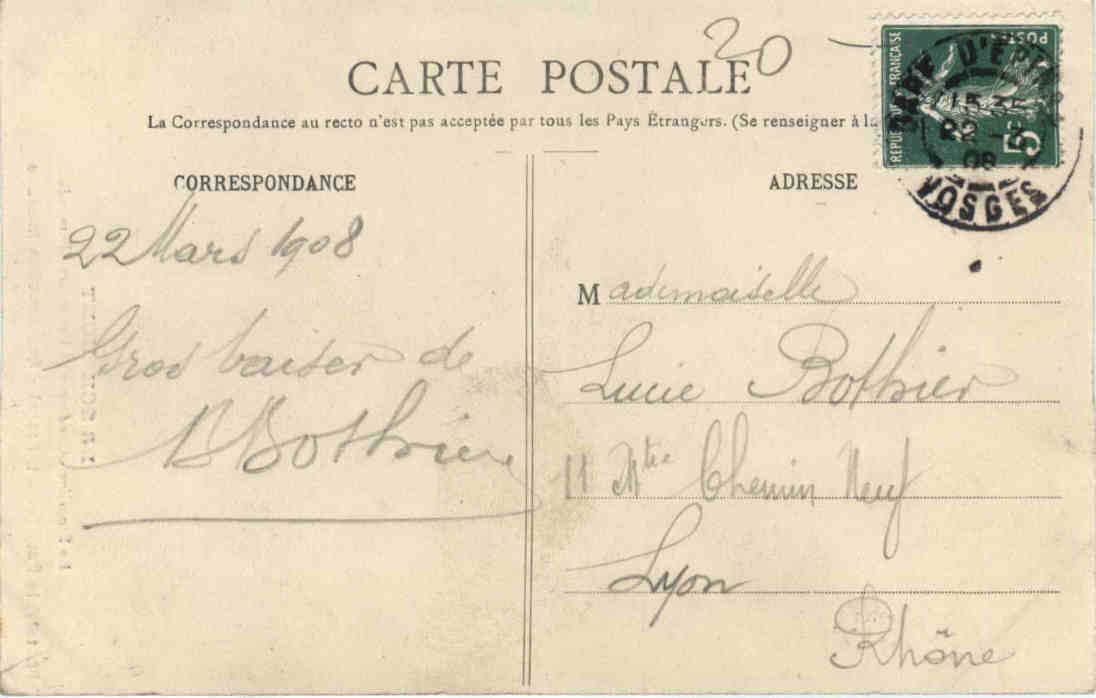 20
CARTE POSTALE
La Correspondance au recto n'est pas acceptée par tous les Pays Étrangers. (Se renseigner à la
REPUBLIQUE FRANÇAISE
POSTES
5
GARE D'EPINAL
15
22 -3
08
VOSGES
CORRESPONDANCE
22 Mars 1908
Gros baiser de
Bothier
ADRESSE
Mademoiselle
Lucie Bothier
11 Mtée Chemin Neuf
Lyon
Rhône